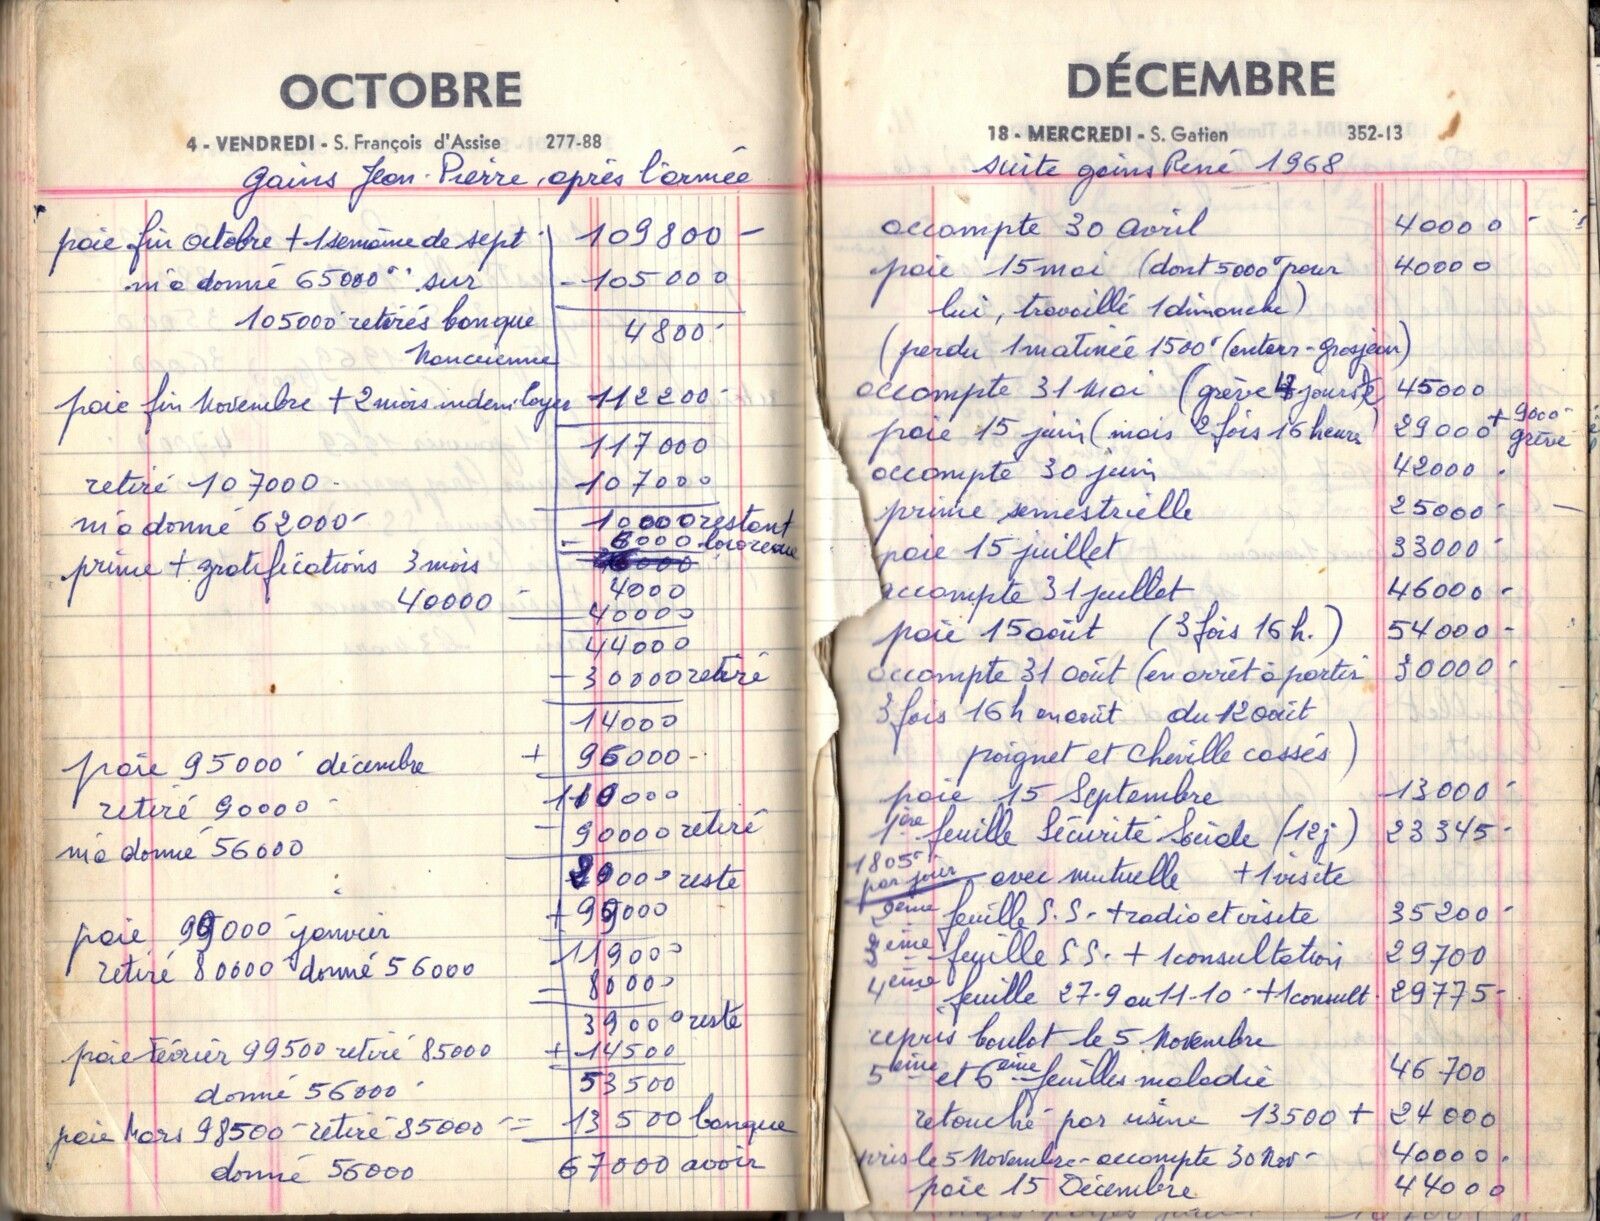 OCTOBRE
4 - VENDREDI - S. François d'Assise 277-88
gains Jean-Pierre, après l'armée
paie fin octobre + 1 semaine de sept 109800 -
m'a donné 65000 sur - 105000
105000 retirés banque 4800
Nanceienne
paie fin Novembre + 2 mois indem. loyer 112200
117000
retiré 107000 - 107000
m'a donné 62000 - 10000 restant
- 6000
prime + gratifications 3 mois
40000 - 4000
40000
44000
- 30000 retiré
14000
paie 95000 décembre + 96000 -
retiré 90000 - 110000
m'a donné 56000 - 90000 retiré
20000 reste
paie 99000 janvier + 99000
retiré 80000 donné 56000 119000
- 80000
39000 reste
paie février 99500 retiré 85000 + 14500
donné 56000 53500
paie Mars 98500 - retiré 85000 = 13500 banque
donné 56000 67000 avoir
DÉCEMBRE
18 - MERCREDI - S. Gatien 352-13
suite gains René 1968
accompte 30 avril 40000 -
paie 15 mai (dont 5000 pour 40000
lui, travaillé 1 dimanche)
(perdu 1 matinée 1500 (enterr - grosjean)
accompte 31 Mai (grève 4 jours 45000
paie 15 juin (mois 2 fois 16 heures) 29000 + 9000 - grève
accompte 30 juin 42000 -
prime semestrielle 25000 -
paie 15 juillet 33000 -
accompte 31 juillet 46000 -
paie 15 août (3 fois 16 h.) 54000 -
accompte 31 août (en arrêt à partir 30000 -
3 fois 16 h en août du 12 août
poignet et cheville cassés)
paie 15 Septembre 13000 -
1ère feuille Sécurité Sociale (12 j) 23345 -
1805 par jour avec mutuelle + 1 visite
2ème feuille S.S. + radio et visite 35200 -
3ème feuille S.S. + 1 consultation 29700
4ème feuille 27-9 au 11-10 + 1 consult. 29775 -
repris boulot le 5 Novembre
5ème et 6ème feuilles maladie 46700
retouché par usine 13500 + 24000
pris le 5 Novembre - accompte 30 Nov - 40000 -
paie 15 Décembre 44000